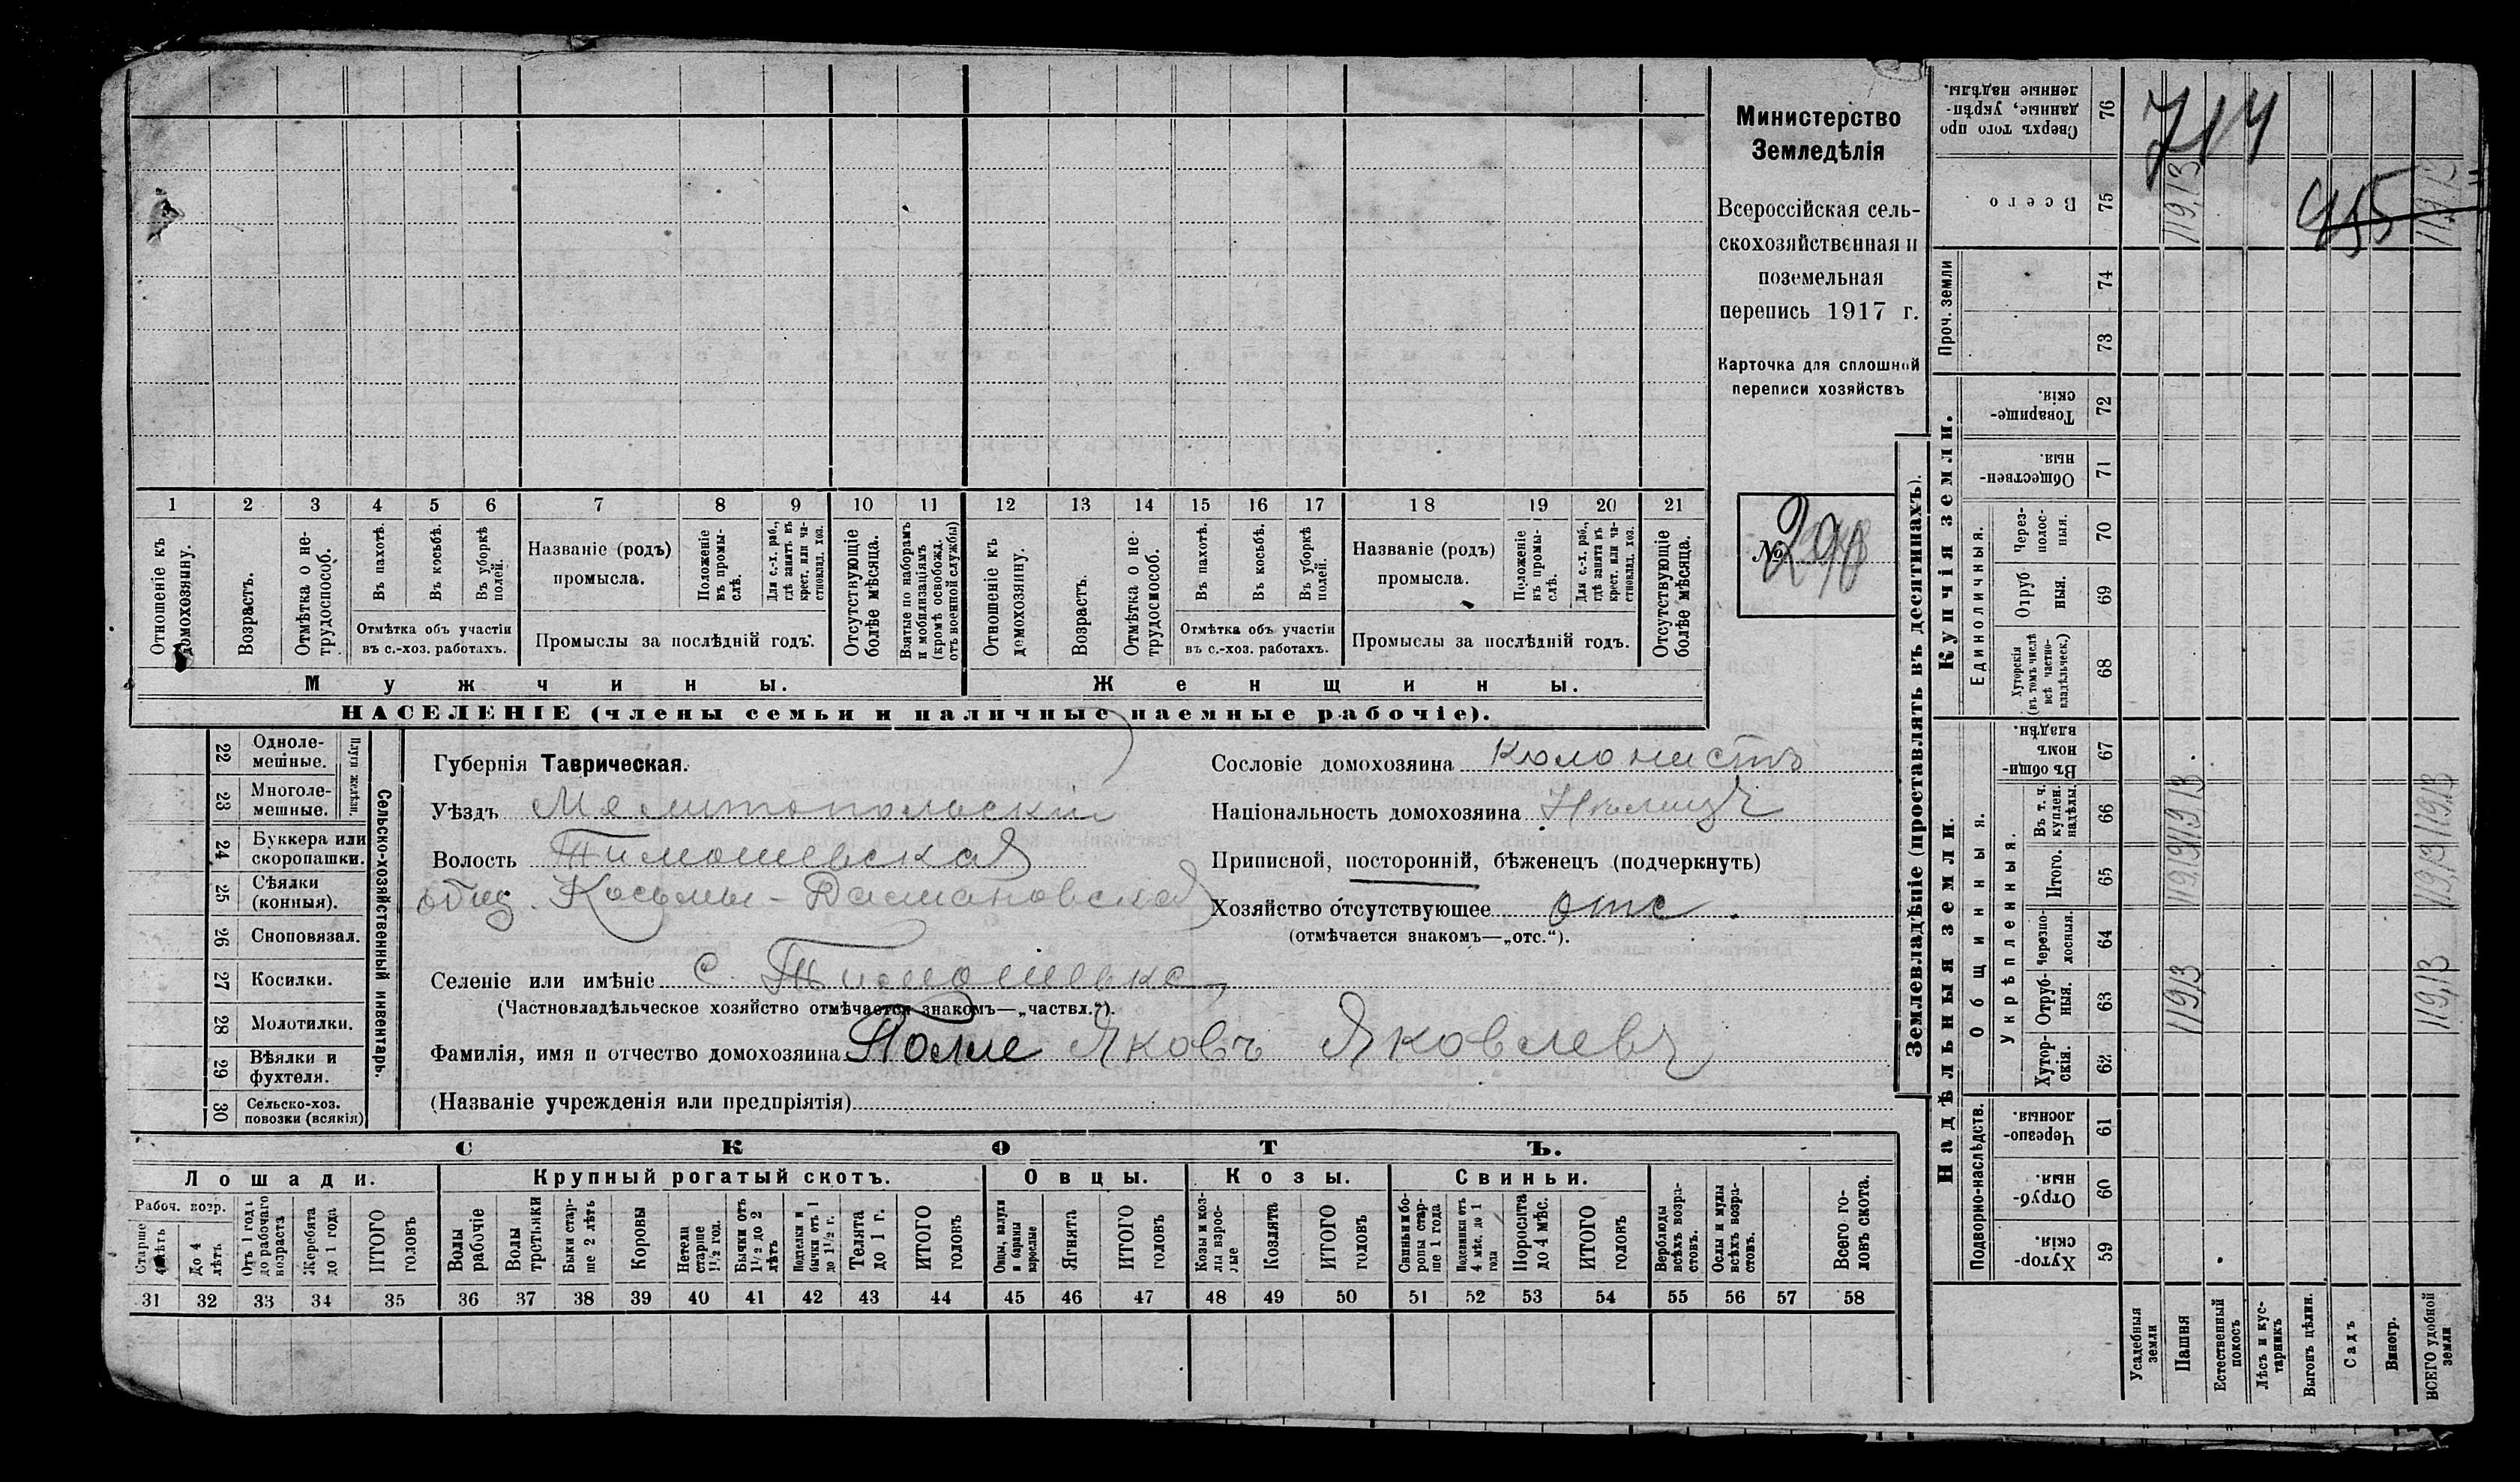 Министерство
Земледѣлія
Всероссійская сель-
скохозяйственная и
поземельная
перепись 1917 г.
Карточка для сплошной
переписи хозяйствъ
№ 290
1 2 3 4 5 6 7 8 9 10 11 12 13 14 15 16 17 18 19 20 21
Отношеніе къ домохозяину.
Возрастъ.
Отмѣтка о не-трудоспособ.
Въ пахотѣ.
Въ косьбѣ.
Въ уборкѣ полей.
Отмѣтка объ участіи
въ с.-хоз. работахъ.
Названіе (родъ)
промысла.
Положеніе въ промы-слѣ.
Для с.-х. раб., гдѣ занятъ въ крест. или ча-стновлад. хоз.
Промыслы за послѣдній годъ.
Отсутствующіе болѣе мѣсяца.
Взятые по наборамъ и мобилизаціямъ (кромѣ освобожд. отъ военной службы)
Отношеніе къ домохозяину.
Возрастъ.
Отмѣтка о не-трудоспособ.
Въ пахотѣ.
Въ косьбѣ.
Въ уборкѣ полей.
Отмѣтка объ участіи
въ с.-хоз. работахъ.
Названіе (родъ)
промысла.
Положеніе въ промы-слѣ.
Для с.-х. раб., гдѣ занята въ крест. или ча-стновлад. хоз.
Промыслы за послѣдній годъ.
Отсутствующіе болѣе мѣсяца.
Мужчины.
Женщины.
НАСЕЛЕНІЕ (члены семьи и наличные наемные рабочіе).
22 Одноле-мешные.
23 Многоле-мешные.
Плуги желѣзн.
24 Буккера или скоропашки.
25 Сѣялки (конныя).
26 Сноповязал.
27 Косилки.
28 Молотилки.
29 Вѣялки и фухтеля.
30 Сельско-хоз. повозки (всякія)
Сельско-хозяйственный инвентарь.
Губернія Таврическая.
Уѣздъ Мелитопольскій
Волость Тимошевская
общ. Косьмы-Дамиановская
Селеніе или имѣніе с. Тимошевка
(Частновладѣльческое хозяйство отмѣчается знакомъ—„частвл.“).
Фамилія, имя и отчество домохозяина Яковъ Яковлевъ
(Названіе учрежденія или предпріятія)
Сословіе домохозяина колонистъ
Національность домохозяина Нѣмецъ
Приписной, посторонній, бѣженецъ (подчеркнуть)
Хозяйство отсутствующее отс.
(отмѣчается знакомъ—„отс.“).
СКОТЪ.
Лошади.
Крупный рогатый скотъ.
Овцы.
Козы.
Свиньи.
Рабоч. возр.
Старше 4 лѣтъ
До 4 лѣтъ
Отъ 1 года до рабочаго возраста
Жеребята до 1 года
ИТОГО головъ
Волы рабочіе
Волы третьяки
Быки стар-ше 2 лѣтъ
Коровы
Нетели старше 1½ год.
Бычки отъ 1½ до 2 лѣтъ
Подтелки и бычки отъ 1 до 1½ г.
Телята до 1 г.
ИТОГО головъ
Овцы, валухи и бараны взрослые
Ягнята
ИТОГО головъ
Козы и коз-лы взрос-лые
Козлята
ИТОГО головъ
Свиньи и бо-ровы стар-ше 1 года
Подсвинки отъ 4 мѣс. до 1 года
Поросята до 4 мѣс.
ИТОГО головъ
Верблюды всѣхъ возра-стовъ.
Ослы и мулы всѣхъ возра-стовъ.
Всего го-ловъ скота.
31 32 33 34 35 36 37 38 39 40 41 42 43 44 45 46 47 48 49 50 51 52 53 54 55 56 57 58
Землевладѣніе (проставлять въ десятинахъ).
Надѣльныя земли.
Купчія земли.
Проч. земли
Подворно-наслѣдств.
Общинныя.
Укрѣпленныя.
Единоличныя.
Хутор-скія. 59
Отруб-ныя. 60
Черезпо-лосныя. 61
Хутор-скія. 62
Отруб-ныя. 63
Черезпо-лосныя. 64
Итого. 65
Въ т. ч. куплен. надѣлы. 66
Въ общи-номъ владѣн. 67
Хуторскія (въ томъ числѣ всѣ частно-владѣльческ.) 68
Отруб ныя. 69
Через-полос-ныя. 70
Обществен-ныя. 71
Товарище-скія. 72
73
74
Всего 75
Сверхъ того про данные, укрѣп-ленные надѣлы. 76
Усадебныя земли
Пашня 119,13 119,13 119,13 119,13
Естественный покосъ
Лѣсъ и кус-тарникъ
Выгонъ цѣлин.
Садъ
Виногр.
ВСЕГО удобной земли 119,13 119,13 119,13 119,13
714
455